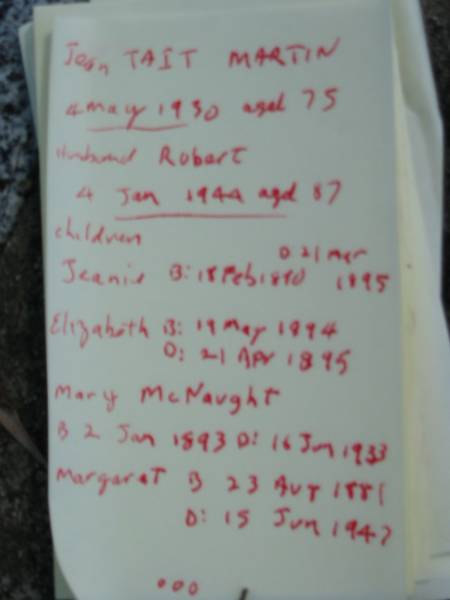 Jean TAIT MARTIN
4 may 1930 aged 75
Husband Robert
4 Jan 1944 aged 87
children
D 21 mar
Jeanie B: 18 Feb 1890 1895
Elizabeth B: 19 may 1894
D: 21 Apr 1895
Mary McNaught
B 2 Jan 1893 D: 16 Jun 1933
Margaret B 23 Aug 1881
D: 15 Jun 1947